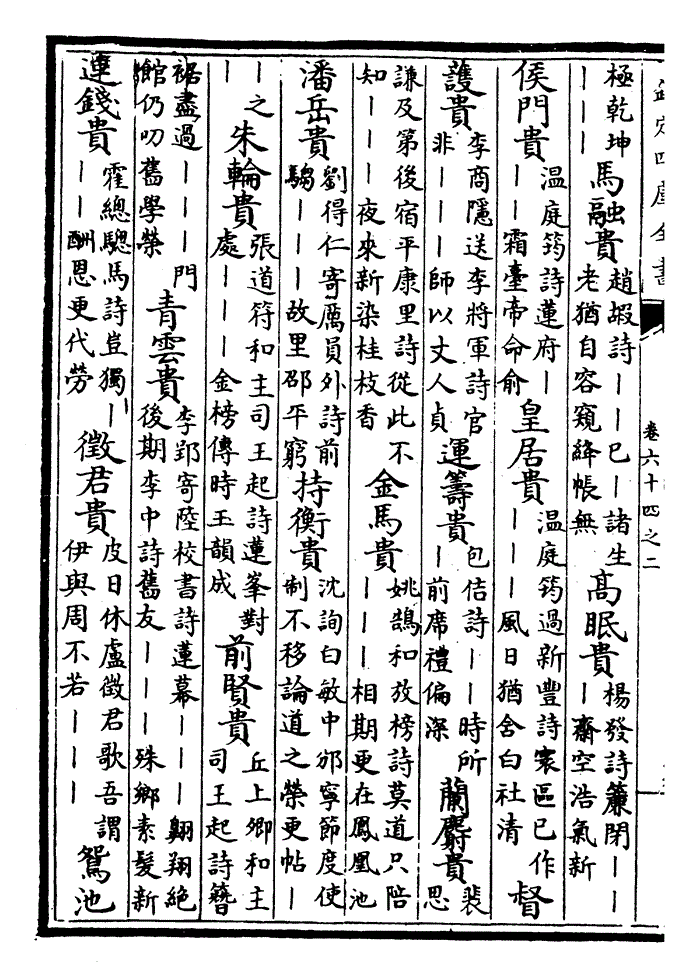 欽定四庫全書
卷六十四之二
極乾坤
———
馬融貴
趙嘏詩——已—諸生
老猶自容窺絳帳無
高眠貴
楊發詩簾閉——
—齋空浩氣新
侯門貴
温庭筠詩蓮府—
——霜臺帝命俞
皇居貴
温庭筠過新豐詩寰區已作
———風日猶舍白社清
督
護貴
李商隱送李將軍詩官
非———師以丈人貞
運籌貴
包佶詩——時所
—前席禮偏深
蘭麝貴
裴
思
謙及第後宿平康里詩從此不
知———夜來新染桂枝香
金馬貴
姚鵠和放榜詩莫道只陪
———相期更在鳳凰池
潘岳貴
劉得仁寄厲員外詩前
騶———故里邵平窮
持衡貴
沈詢白敏中邠寧節度使
制不移論道之榮更帖—
—之
—
朱輪貴
張道符和主司王起詩蓮峯對
處———金榜傳時玉韻成
前賢貴
丘上卿和主
司王起詩簪
裾盡過———門
館仍叨舊學榮
青雲貴
李郢寄陸校書詩蓮幕———翺翔絶
後期李中詩舊友———殊鄉素髮新
連錢貴
霍總驄馬詩豈獨—
——酬恩更代勞
徵君貴
皮日休盧徵君歌吾謂
伊與周不若———
鴛池